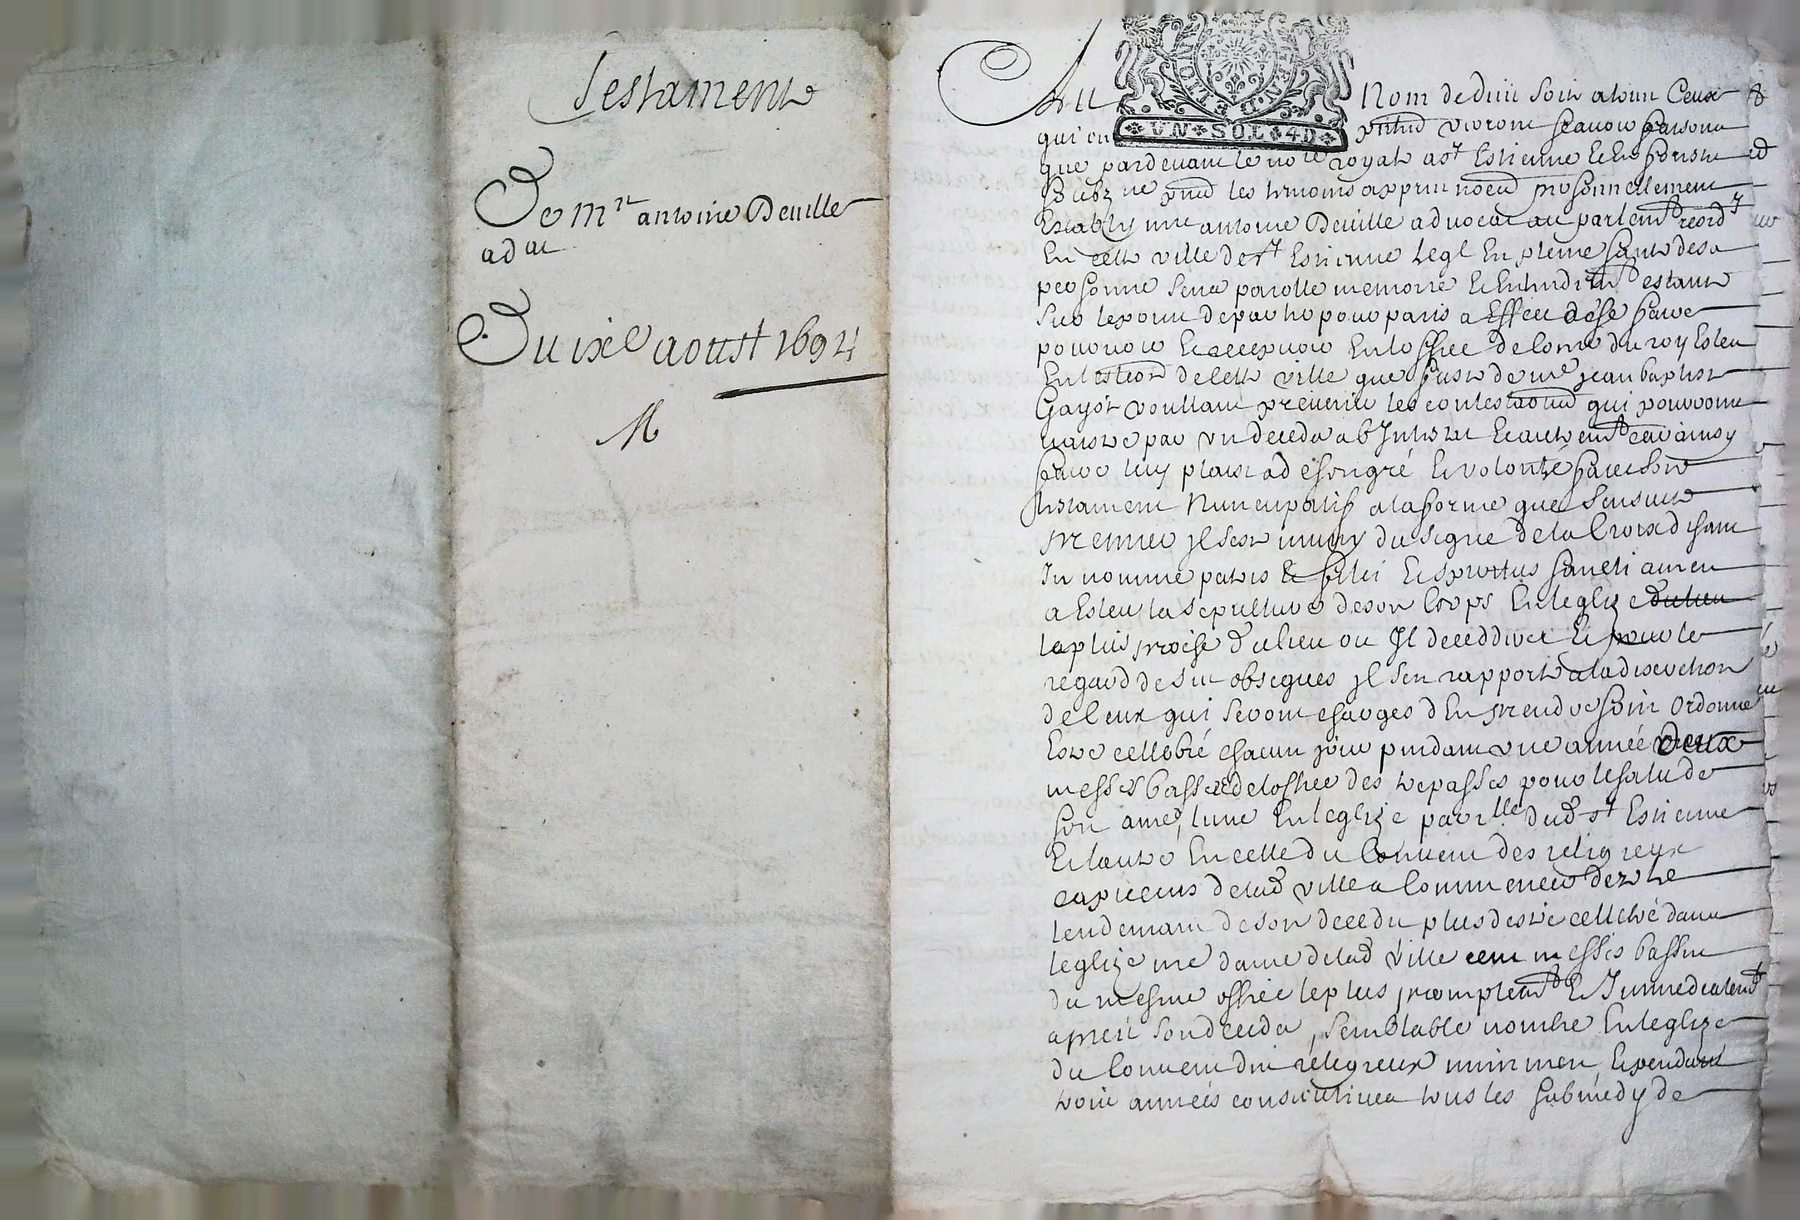 Testament
De mre antoine Deville
adat
Du ixe aoust 1694
M
Au Nom de dieu soit a tous Ceux
UN SOL 4D
qui ces pntes verront scavoir faisons
que pardevant le nore royal a st Estienne
les tesmoins appres nommés personnellement
Estably mre antoine Deville advocat au parlemt resid
En cette ville de st Estienne legl En pleine santé de sa
personne sens parolle memoire Et Entendemt estant
sur le point de partir pour paris a Effect de se faire
pourvoir Et recepvoir En loffice de conser du roy Esleu
En lestion de cette ville que fust de mre jean baptiste
Gayot voullant prevenir les contesta͠ons qui pourroint
naistre par un deceds ab Intestat Et autremt car ainsy
faire luy plaist a de son gré Et volonté faict son
testament Nuncupatif a la forme que sensuit
premier jl sest muny du signe de la Croix disant
In nomine patris Et filii Et spiritus sancti amen
a Esleu la sepulture de son Corps En leglize du lieu
la plus proche du lieu ou Il deceddera Et pour le
regard de ses obseques jl sen rapporte a la discretion
de Ceux qui seront charges den prendre soin ordonne
Estre cellebré chacun jour pendant une année deux
messes basses de loffice des trepasses pour le salut de
son ame, lune En leglize parrlle dud st Estienne
Et lautre En celle du Couvent des religieux
capucins de lad ville a Commencer dez le
lendemain de son deceds plus destre cellebré dans
leglize nre dame de lad ville cent messes basses
du mesme office le plus promptemt Et Immediatemt
apres son deceds, semblable nombre En leglize
du Couvent des religieux minimes, Et pendant
trois années consecutives tous les sabmedy de